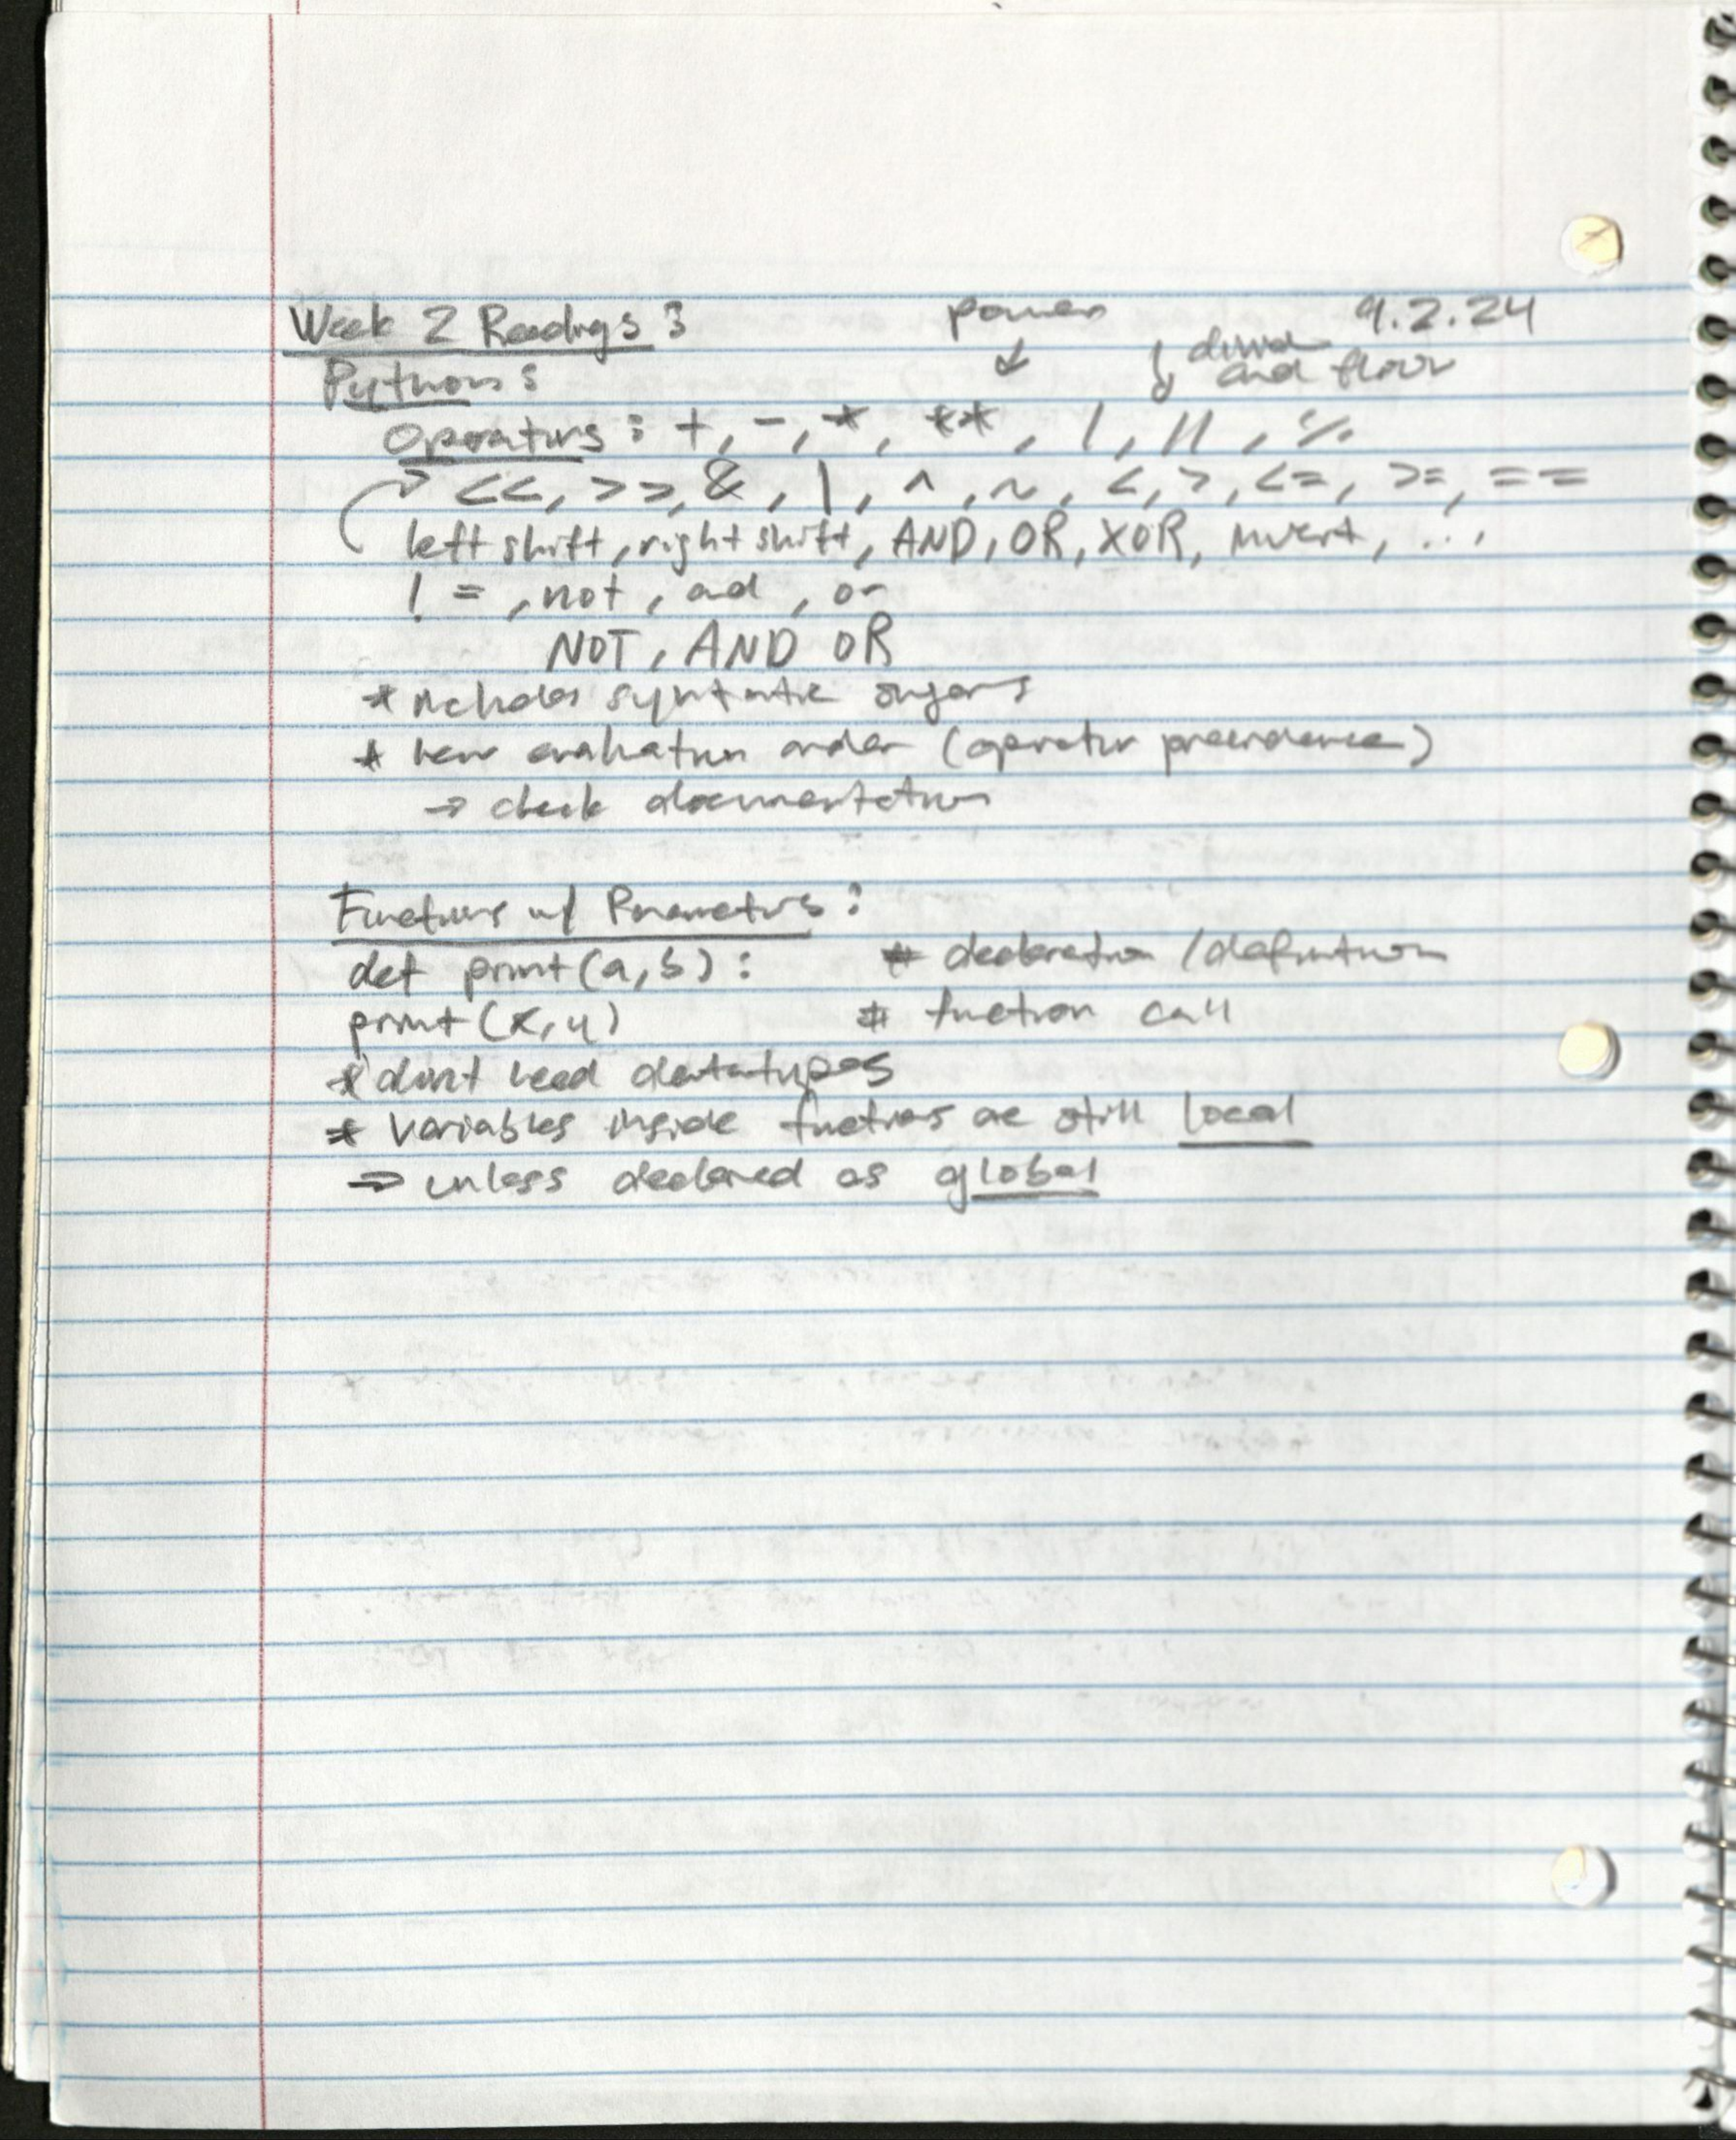 Week 2 Readings :
power
9.2.24
divide
and floor
Python :
Operators : +, -, *, **, /, //, %
<<, >>, &, |, ^, ~, <, >, <=, >=, ==
left shift, right shift, AND, OR, XOR, invert, ...
! = , not , and , or
NOT, AND OR
* includes syntatic sugars
* new evaluation order (operator precendence)
→ check documentation
Functions w/ Parameters :
def print(a,b) : # declaration / definition
print(x,y) # function call
* don't need datatypes
* variables inside functions are still local
⇒ unless declared as global